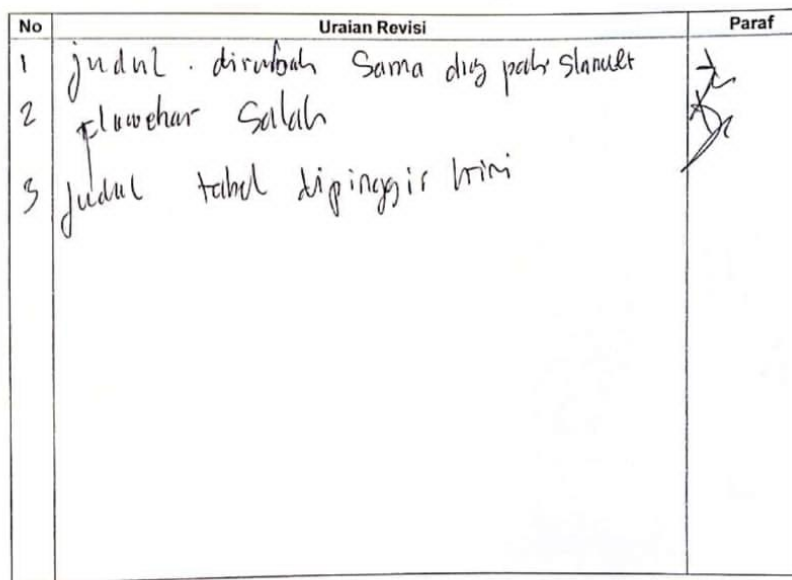 No Uraian Revisi Paraf
1 judul . dirubah Sama dng pak Slamet
2 Flowchar Salah
3 judul tabel dipinggir kiri